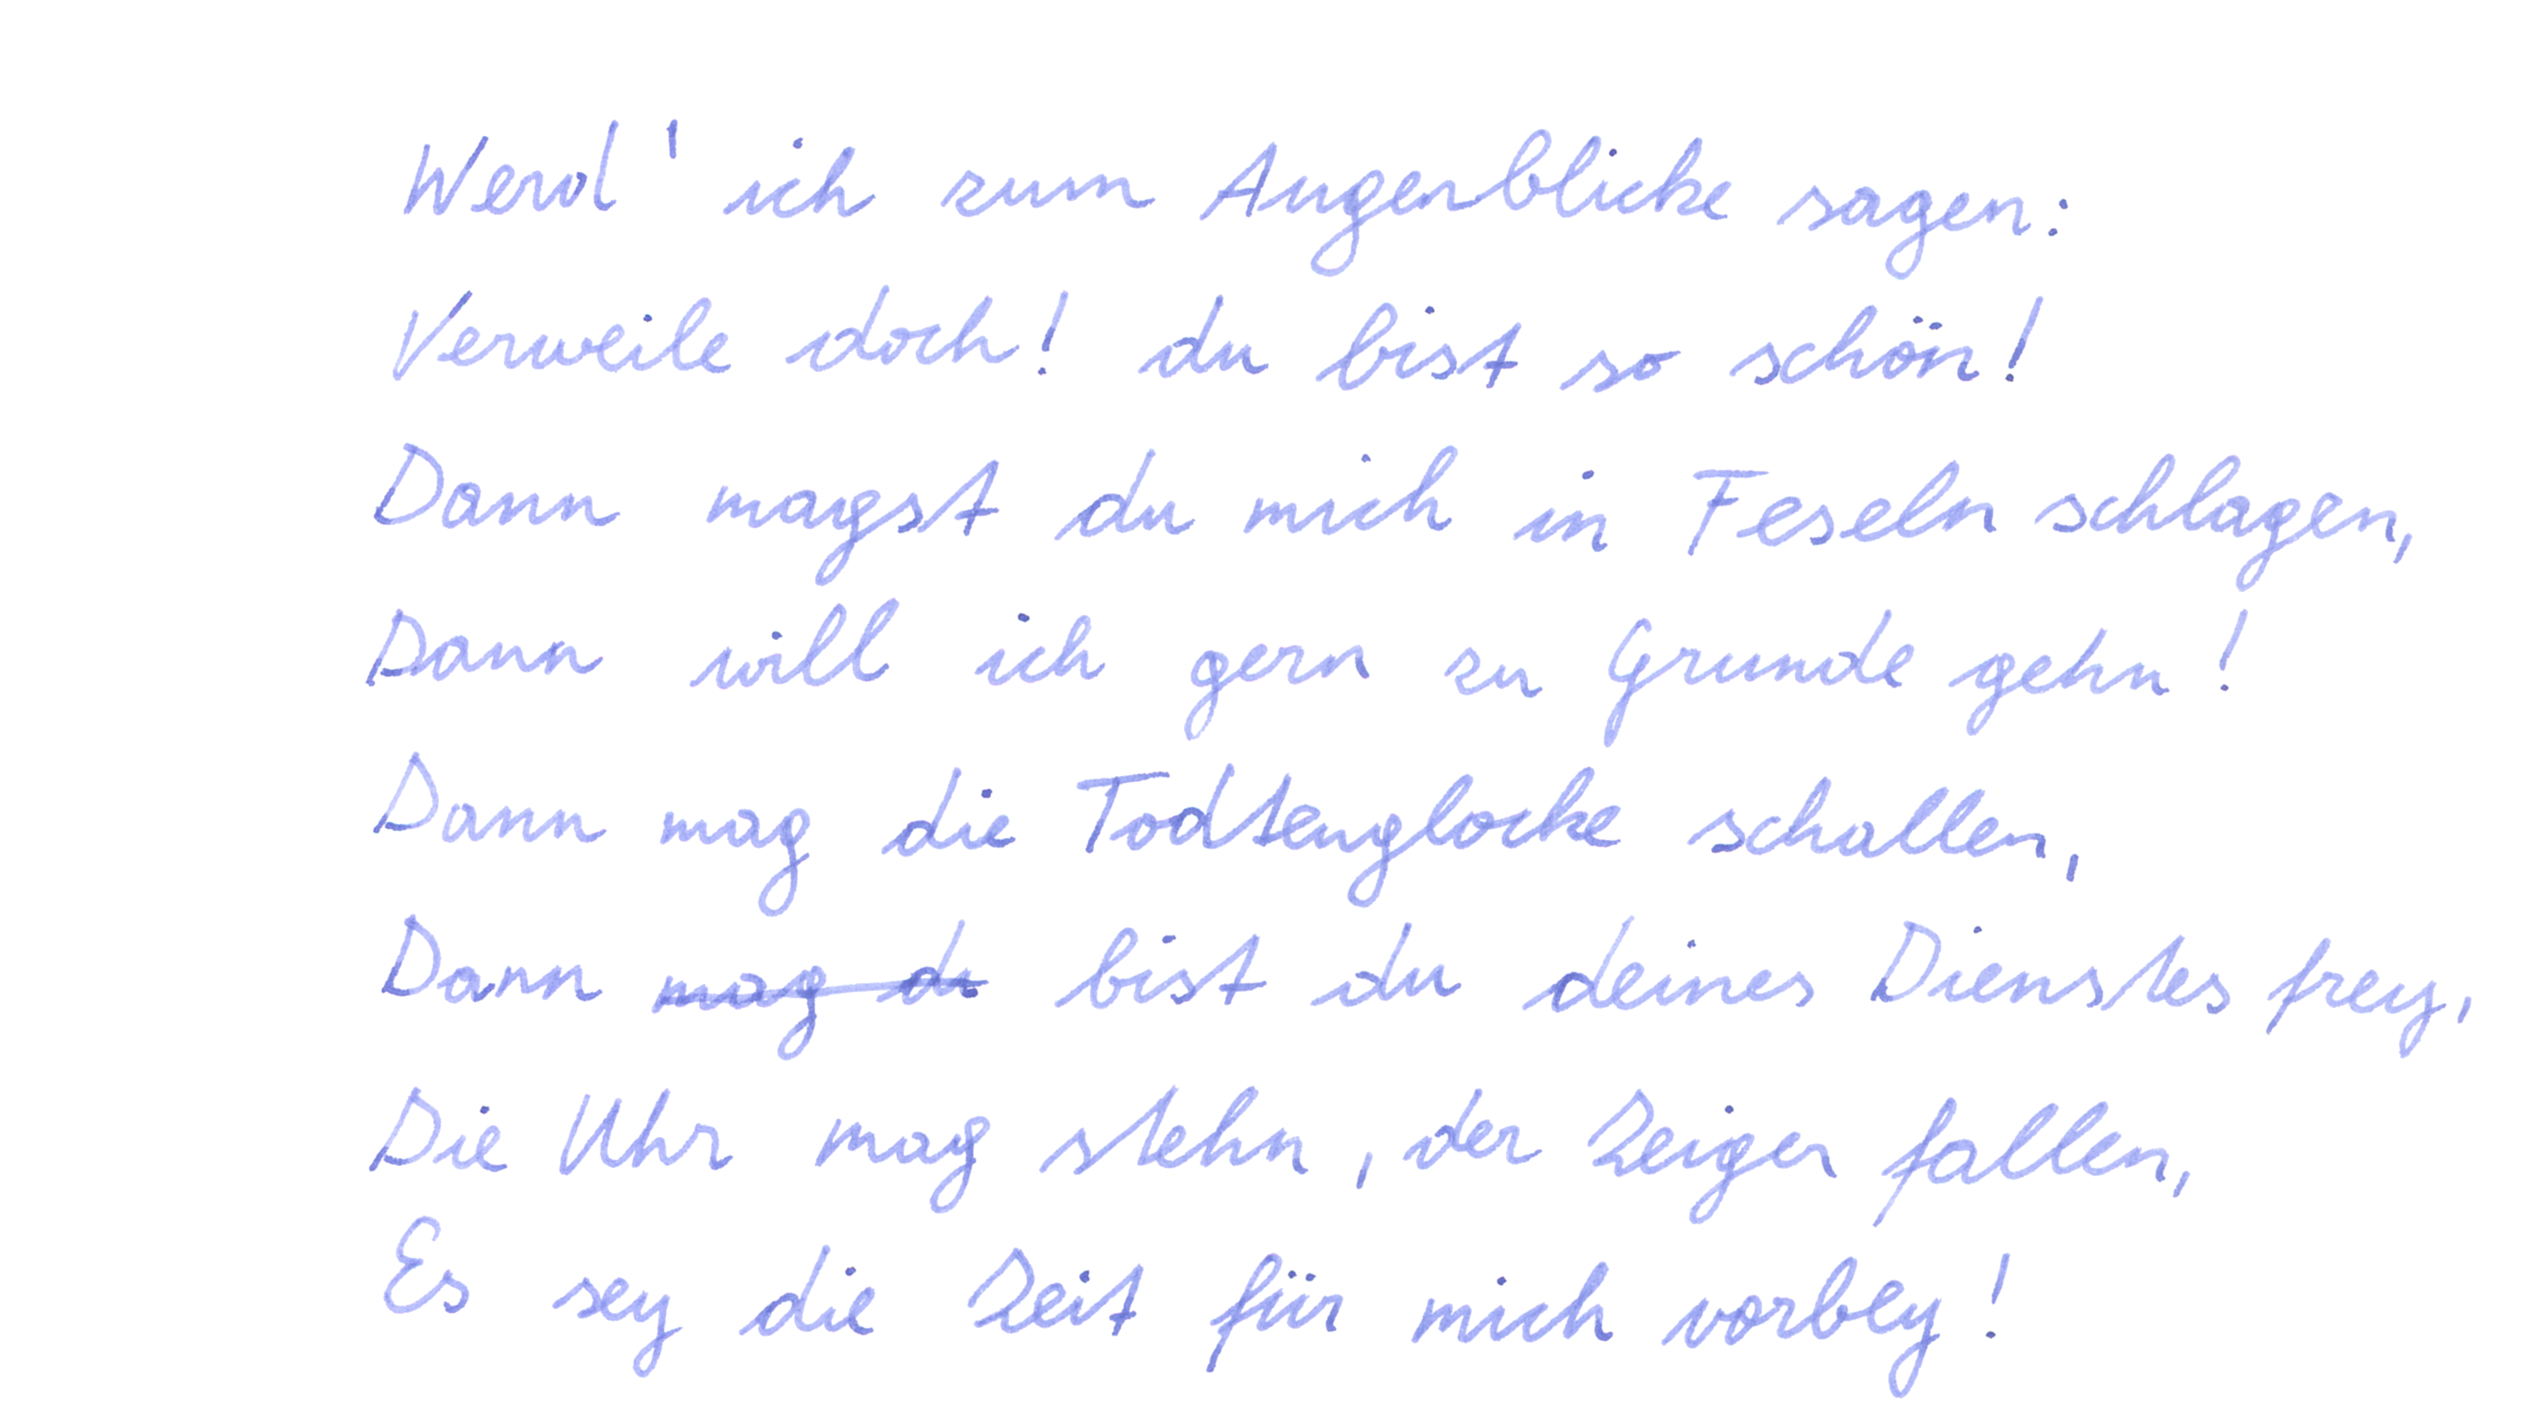 Werd' ich zum Augenblicke sagen:
Verweile doch! du bist so schön!
Dann magst du mich in Feseln schlagen,
Dann will ich gern zu Grunde gehn!
Dann mag die Todtenglocke schallen,
Dann mag du bist du deines Dienstes frey,
Die Uhr mag stehn, der Zeiger fallen,
Es sey die Zeit für mich vorbey!